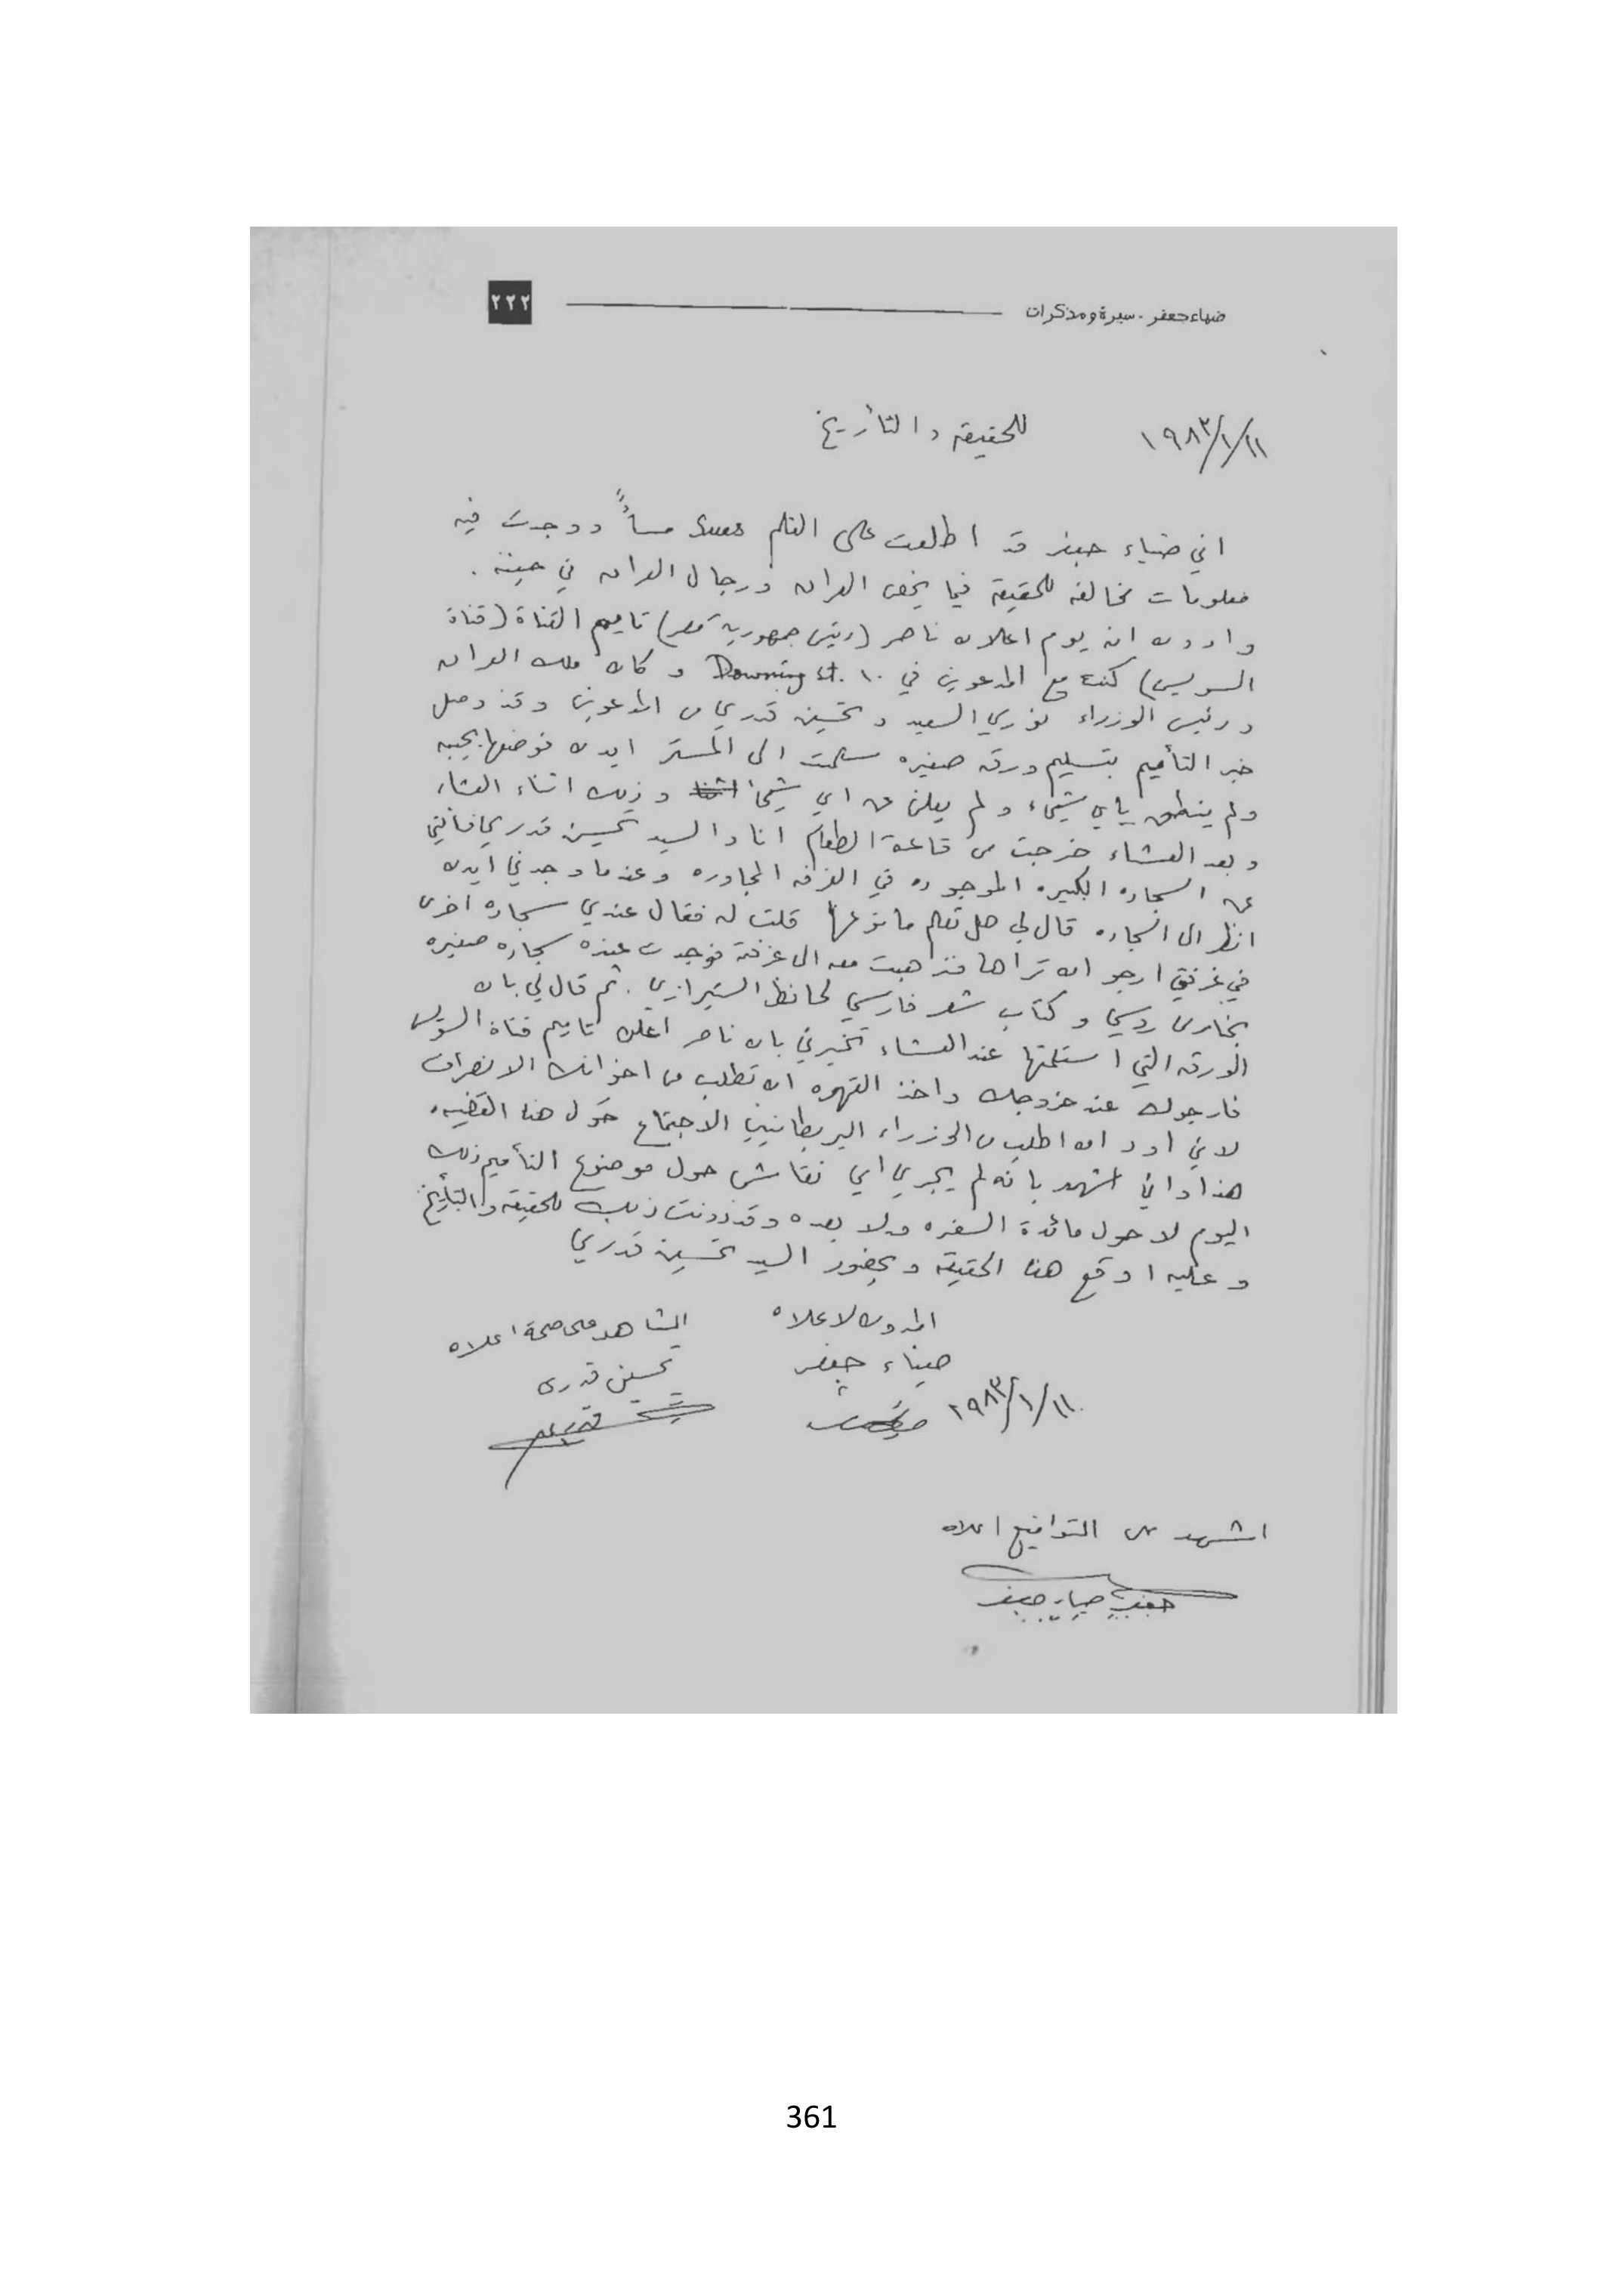 ضياء جعفر - سيرة ومذكرات
٢٢٢
١٩٨٣/١/١١
للحقيقة والتأريخ
اني ضياء جعفر قد اطلعت على الفلم Sues مساءً ووجدت فيه
معلومات مخالفه للحقيقة فيما يخص العراق ورجال العراق في حينه .
وادون انه يوم اعلان ناصر (رئيس جمهورية مصر) تاميم القناة (قناة
السويس) كنت مع المدعوين في ١٠ Downing st. و كان ملك العراق
ورئيس الوزراء نوري السعيد و تحسين قدري من المدعوين وقد وصل
خبر التأميم بتسليم ورقه صغيره سلمت الى المستر ايدن فوضعها بجيبه
ولم ينطق باي شيء ولم يعلن عن اي شيئاً وذلك اثناء العشاء
وبعد العشاء خرجت من قاعة الطعام انا والسيد تحسين قدري
عن السجاده الكبيره الموجوده في الغرفه المجاوره وعندما وجدني ايدن
انظر الى السجاده قال لي هل تعلم ما نوعها قلت له فقال عندي سجاده اخرى
في غرفتي ارجو ان تراها فذهبت معه الى غرفته فوجدت عنده سجاده صغيره
بخارى روسي و كتاب شعر فارسي لحافظ الشيرازي . ثم قال لي بان
الورقه التي استلمتها عند العشاء تخبرني بان ناصر اعلن تاميم قناة السويس
فارجوك عند خروجك واخذ القهوه ان تطلب من اخوانك الانصراف
لاني اود ان اطلب من الوزراء البريطانيين الاجتماع حول هذا القضيه
هذا واني اشهد بانه لم يجري اي نقاش حول موضوع التأميم ذلك
اليوم لا حول مائدة السفره ولا بعده وقد دونت ذلك للحقيقه والتأريخ
وعليه اوقع هذا الحقيقة وبحضور السيد تحسين قدري
المدون لاعلاه
الشاهد على صحة اعلاه
ضياء جعفر
تحسين قدرى
١٩٨٣/١/١١
اشهد على التواقيع اعلاه
جعفر ضياء جعفر
361